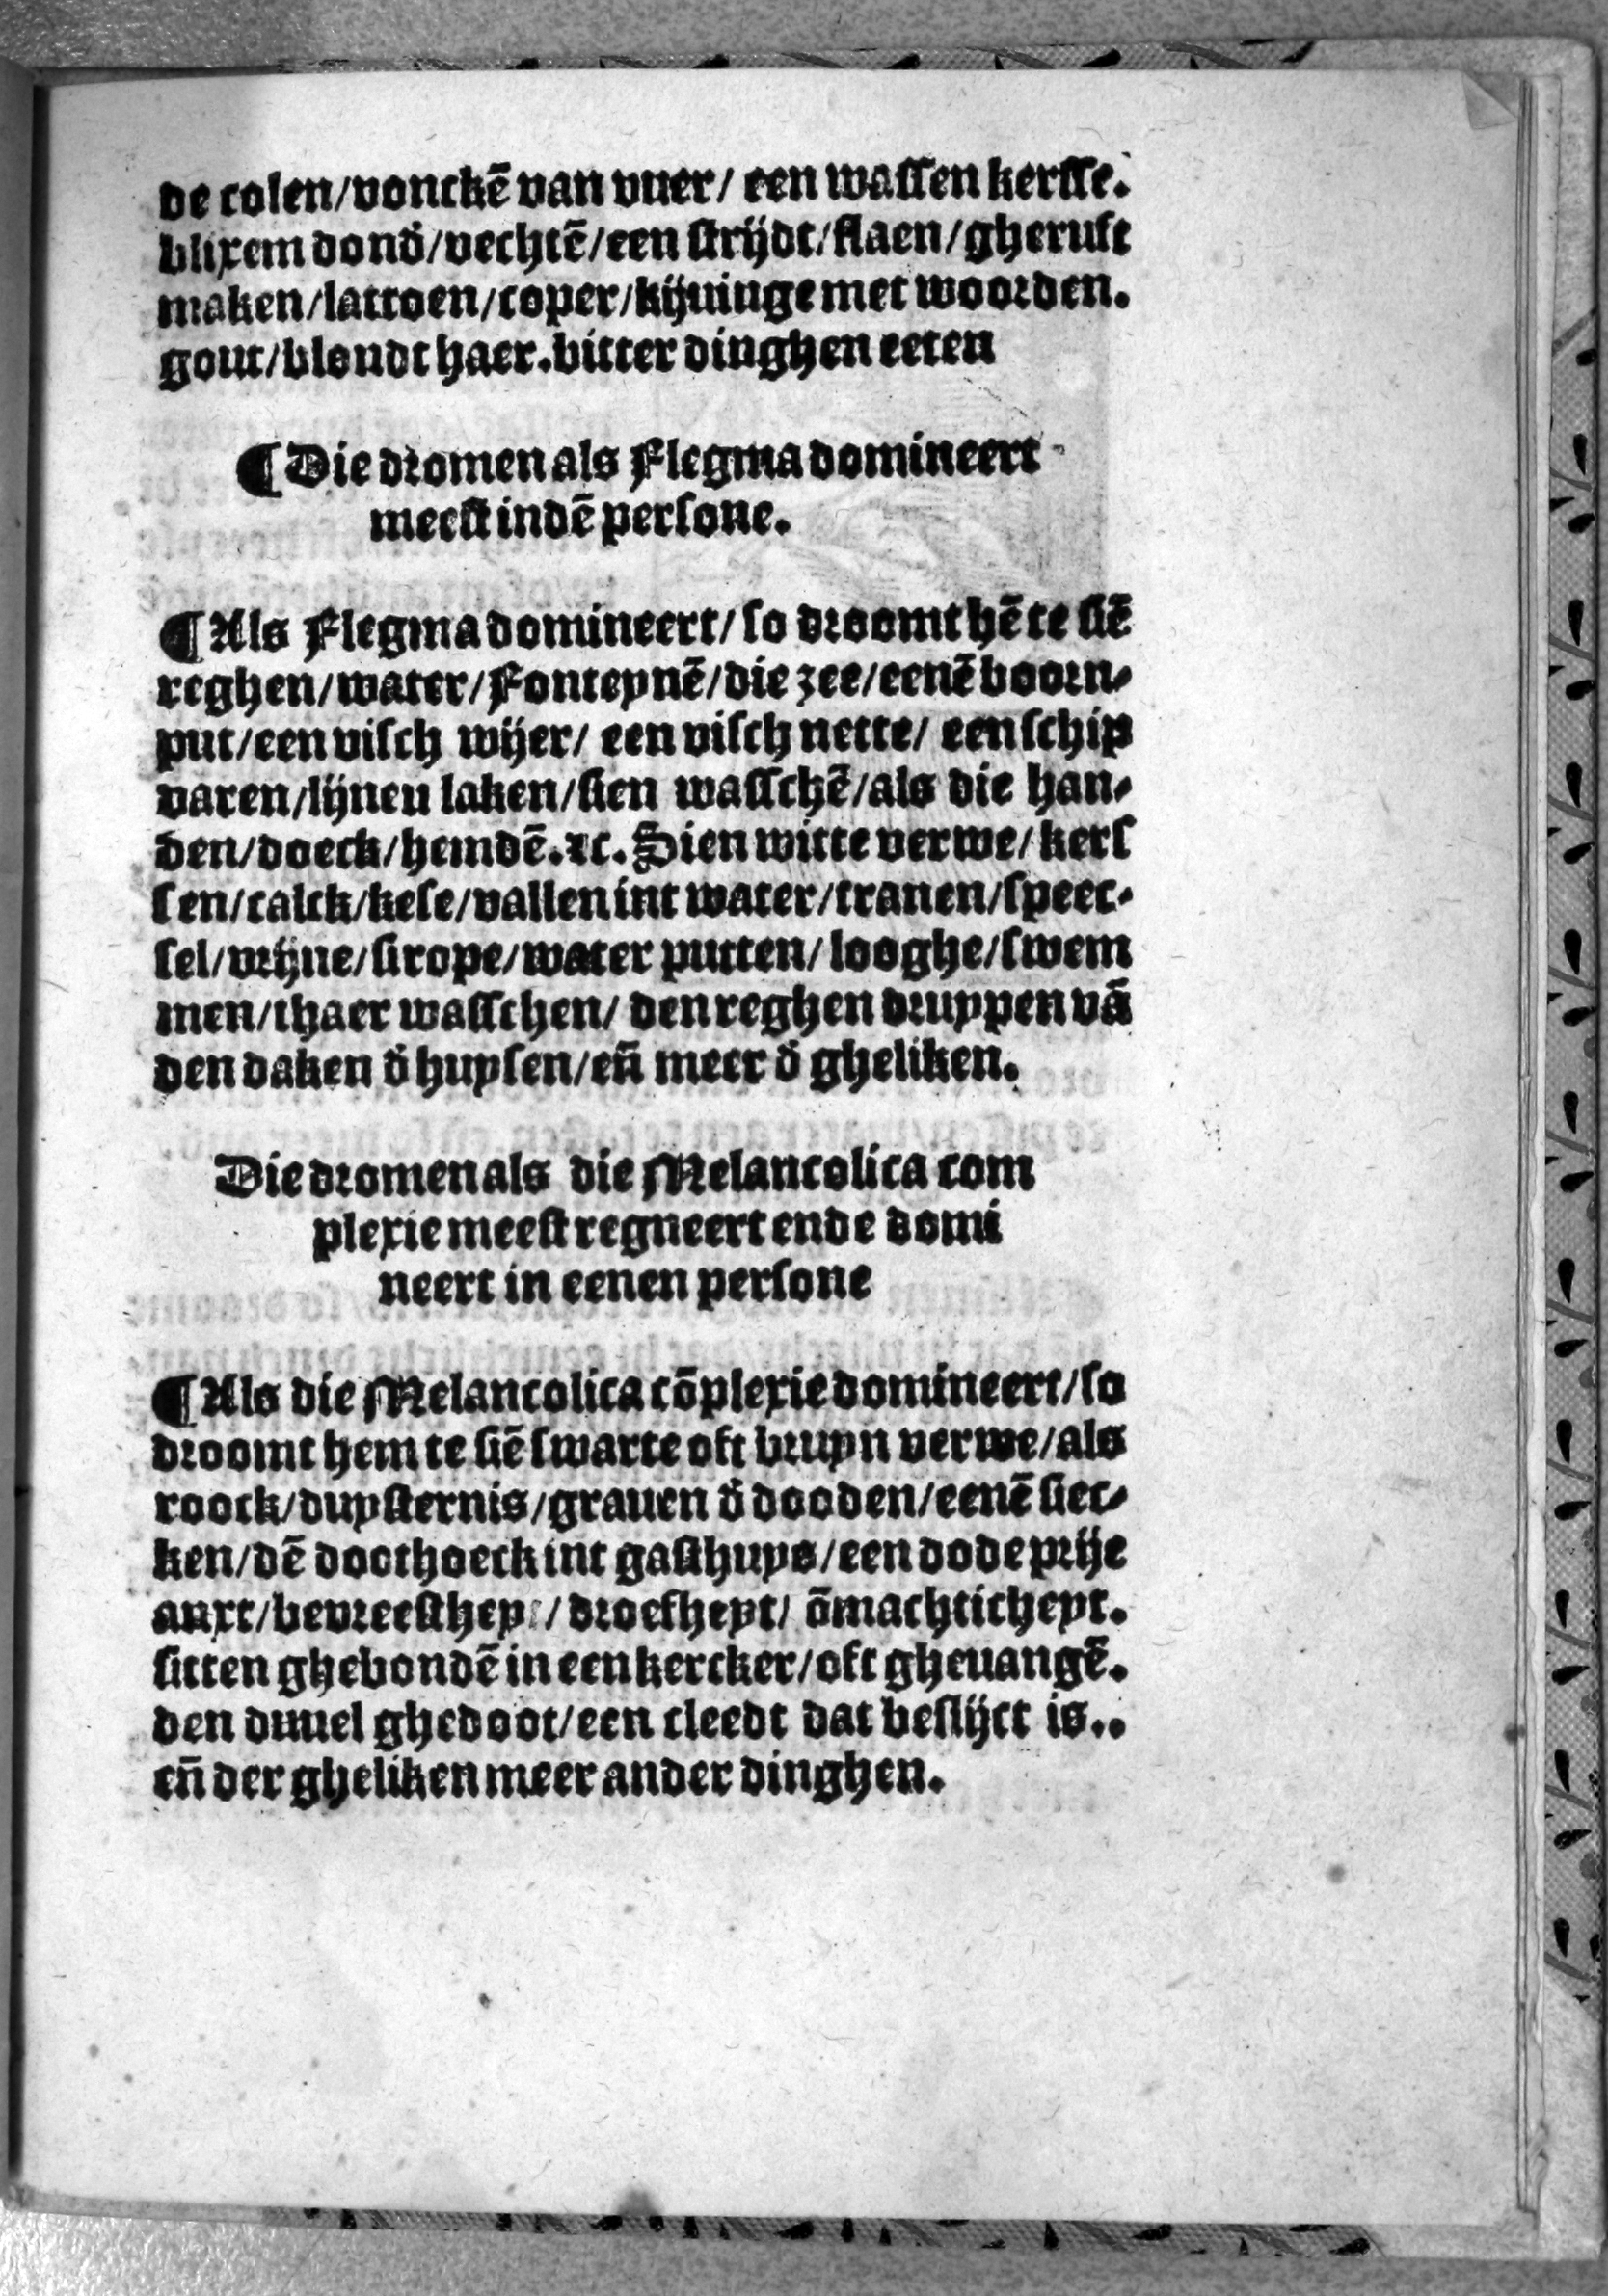 de colen/vonckē van vuer/ een waſſen kerſſe.
blixem dond̄/vechtē/een ſtrijdt/ſlaen/gheruft
maken/lattoen/coper/kijuinge met woorden.
gout/blondt haer.bitter dinghen eeten
¶Die dromen als Flegma domineert
meeſt indē perſone.
¶Als Flegma domineert/ſo droomt hē te ſiē
reghen/water/Fonteynē/die zee/eenē boorn-
put/een viſch wijer/ een viſch nette/ een ſchip
varen/lijnen laken/ſien waſſchē/als die han-
den/doeck/hemdē.⁊c.Sien witte verwe/kerſ
ſen/calck/keſe/vallen int water/tranen/ſpeec-
ſel/vrijne/ſirope/water putten/looghe/ſwem
men/thaer waſſchen/ den reghen druppen vā
den daken d̄ huyſen/eñ meer d̄ gheliken.
Die dromen als die Melancolica com
plexie meeſt regneert ende domi
neert in eenen perſone
¶Als die Melancolica cōplexie domineert/ſo
droomt hem te ſiē ſwarte oft bruyn verwe/als
roock/duyſternis/grauen d̄ dooden/eenē ſiec-
ken/dē doothoeck int gaſthuys/een dode prije
anxt/bevreeſthey/droefheyt/ ōmachticheyt.
ſitten ghebondē in een kercker/oft gheuangē.
den duuel ghedoot/een cleedt dat beſlijct is..
eñ der gheliken meer ander dinghen.